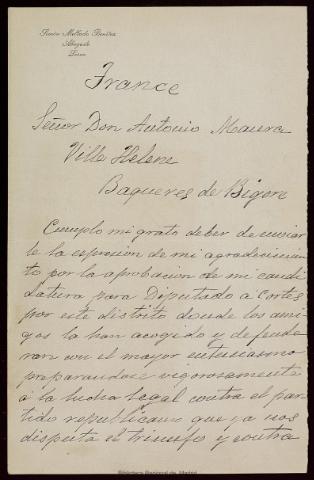 Abogado
France
Señor Don Antonio Maura
Ville Helene
Baqueres de Bigore
Cumplo mi grato deber de enviar
le la espresion de mi agradecimien
to por la aprobacion de mi candi
datura para Diputado á Cortes
por este distrito donde los ami
gos la han acojido y defende
ran con el mayor entusiasmo
preparandose vigorosamente
á la lucha legal contra el par
tido republicano que ya nos
disputa el triunfo y contra
Biblioteca Nacional de Madrid